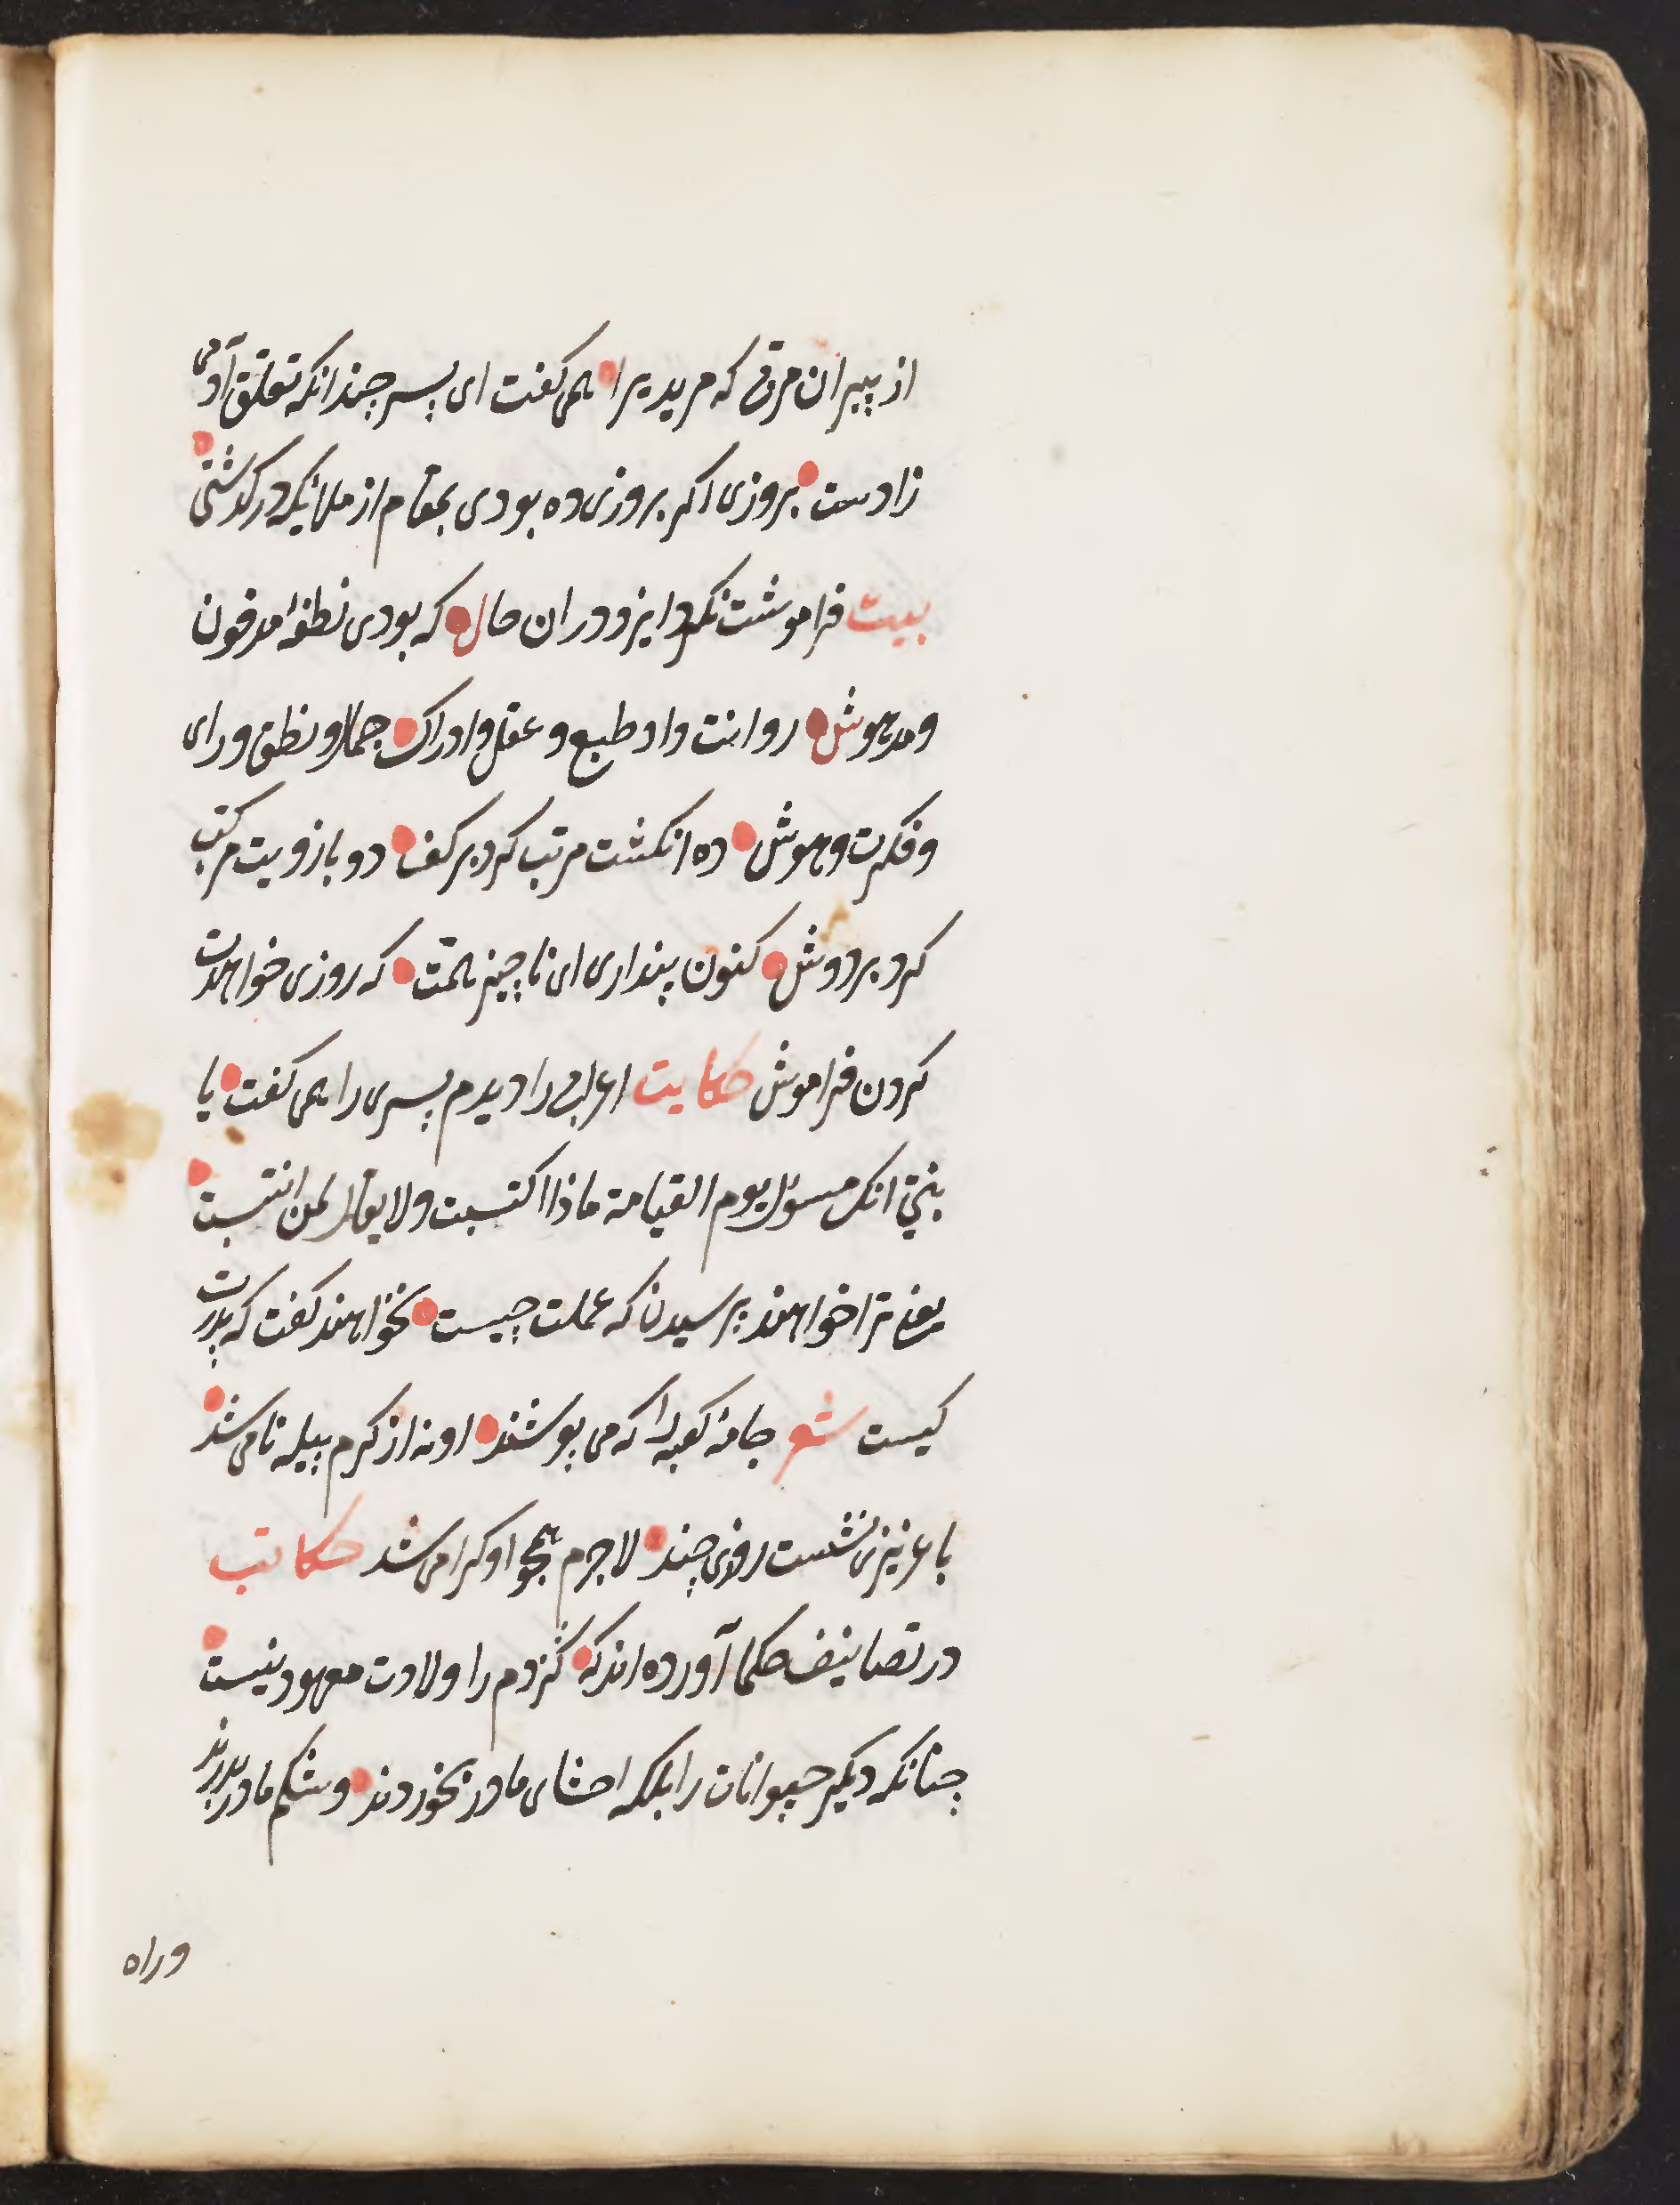 از پیران مربی که مریدیرا همی کفت ای پسر چندانکه تعلق آدمی
زادست بروزی اکر بروزی ده بودی بمقام از ملائیکه در کذشتی
بیت فراموشت نکرد ایزد دران حال که بودی نطفهٔ مدفون
ومدهوش روانت داد طبع و عقل وادراک جمال ونطق ورای
وفکرت وهوش ده انکشت مرتب کرد بر کف دو بازویت مرکب
کرد بر دوش کنون پنداری ای ناچیز همت که روزی خواهدت
کردن فراموش حکایت اعرابی را دیدم پسری را همی کفت یا
بنیّ انک مسؤل یوم القیامة ماذا اکتسبت ولا یقال لمن انتسبت
یعنی ترا خواهند پرسیدن که عملت چیست نخواهند کفت که پدرت
کیست شعر جامهٔ کعبه را که می پوشند او نه از کرم پیله نامی شد
با عزیزی نشست روزی چند لاجرم همچو او کرامی شد حکایت
در تصانیف حکما آورده اند که کژدم را ولادت معهود نیست
چنانکه دیکر حیوانات را بلکه احشای مادر بخوردند وشکم مادر بدرند
وراه